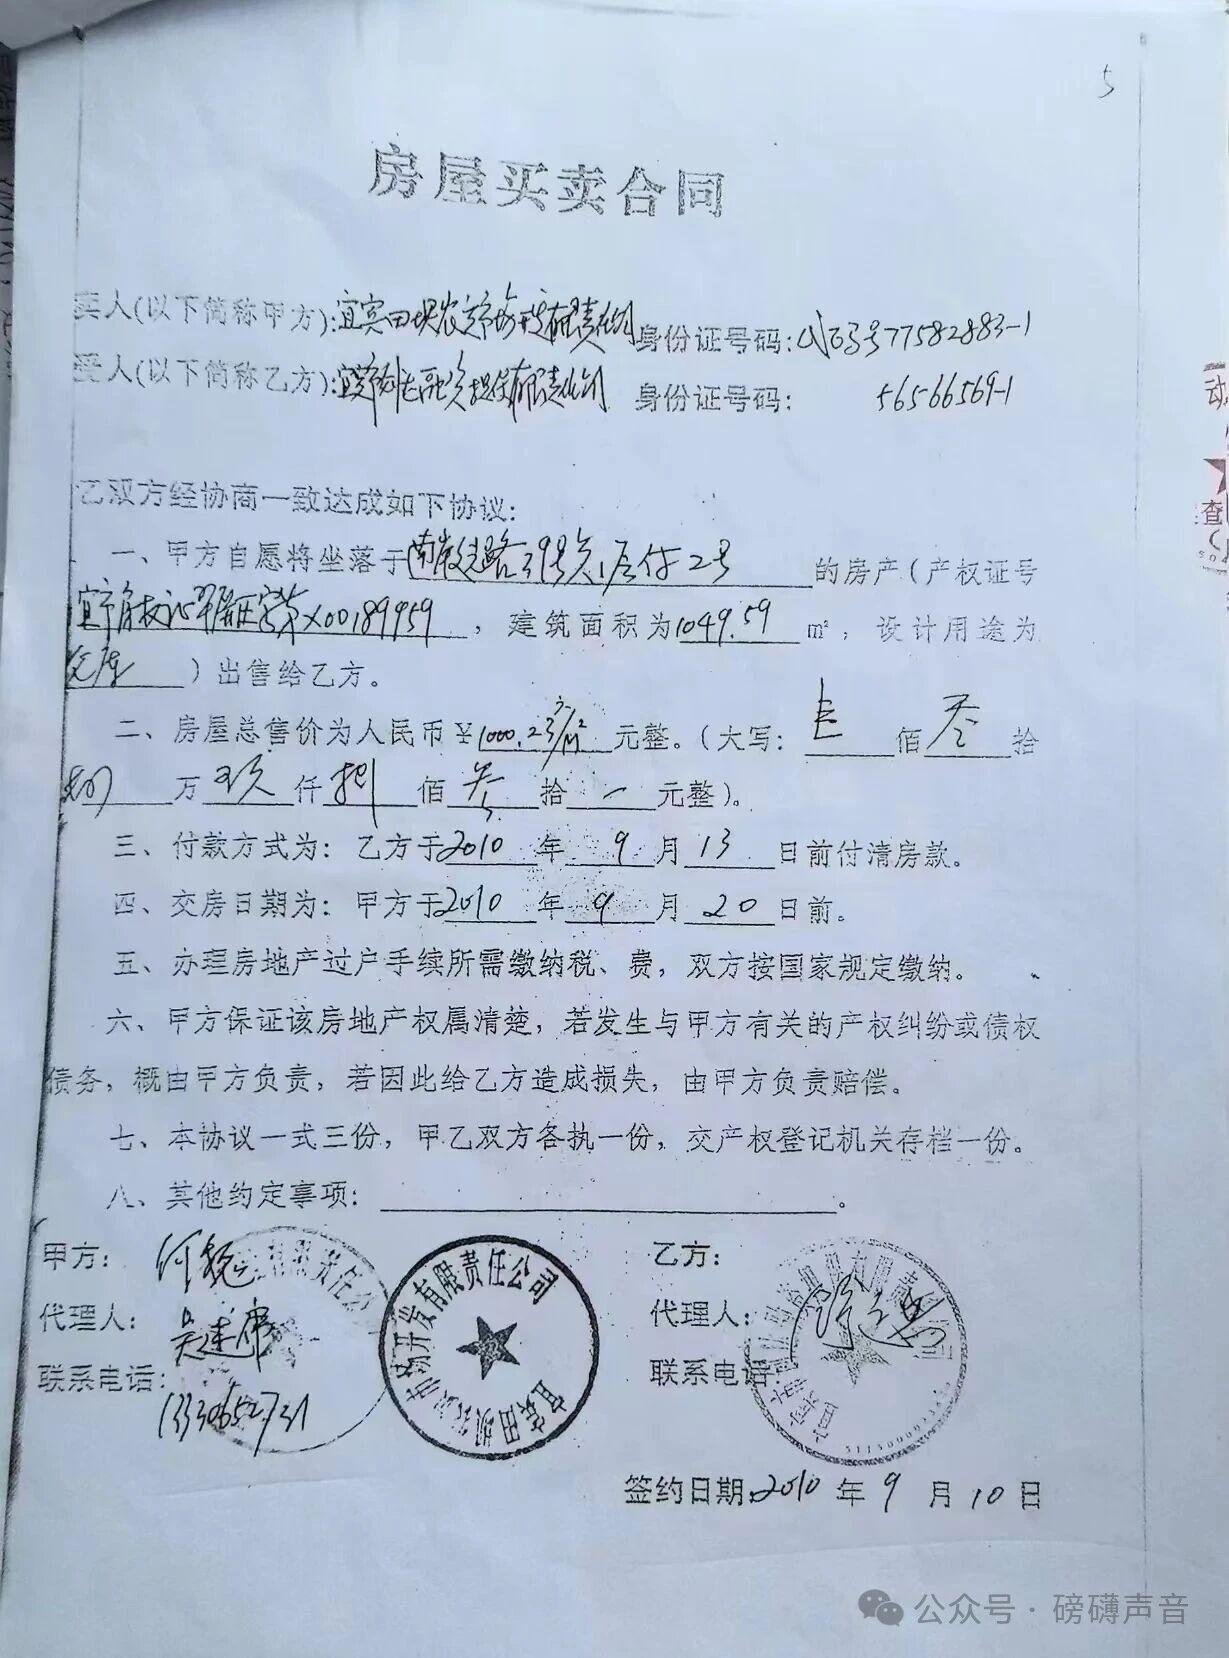 5
房屋买卖合同
卖人(以下简称甲方):宜宾田坝农 有限责任公司 身份证号码: 77582883-1
受人(以下简称乙方): 融资担保有限责任公司 身份证号码: 56566569-1
乙双方经协商一致达成如下协议:
一、甲方自愿将坐落于南岸 路 39号 2号 的房产(产权证号
宜市房权证翠屏区字第X00189959,建筑面积为1049.59㎡,设计用途为
仓库)出售给乙方。
二、房屋总售价为人民币¥1000. 元/M² 元整。(大写: 佰叁拾
万 仟捌佰叁拾一元整)。
三、付款方式为:乙方于2010年9月13日前付清房款。
四、交房日期为:甲方于2010年9月20日前。
五、办理房地产过户手续所需缴纳税、费,双方按国家规定缴纳。
六、甲方保证该房地产权属清楚,若发生与甲方有关的产权纠纷或债权
债务,概由甲方负责,若因此给乙方造成损失,由甲方负责赔偿。
七、本协议一式三份,甲乙双方各执一份,交产权登记机关存档一份。
八、其他约定事项: 。
甲方: 何
代理人: 吴建
联系电话:
有限责任公
宜宾田坝农 市场开发有限责任公司
乙方:
代理人:
联系电话:
签约日期:2010年9月10日
动
查
公众号 · 磅礴声音